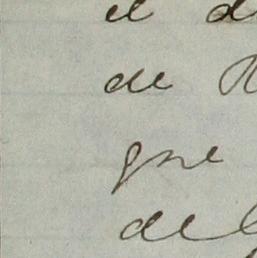 el d
de
que
del